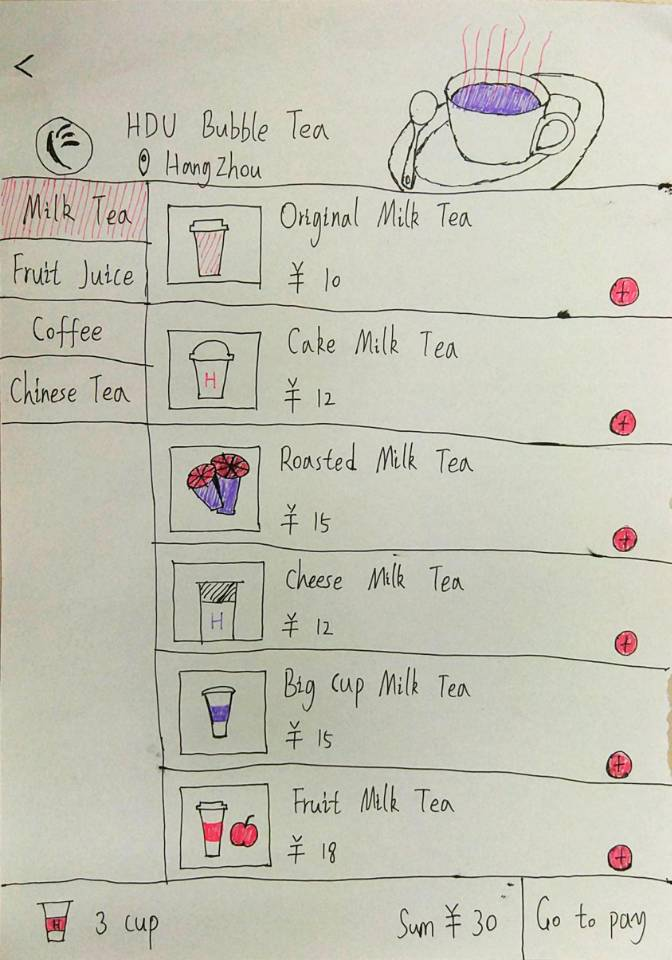 <
HDU Bubble Tea
HangZhou
Milk Tea
Fruit Juice
Coffee
Chinese Tea
Original Milk Tea
¥ 10
+
Cake Milk Tea
H
¥ 12
+
Roasted Milk Tea
¥ 15
+
Cheese Milk Tea
H
¥ 12
+
Big Cup Milk Tea
¥ 15
+
Fruit Milk Tea
¥ 18
+
H
3 cup
Sum ¥ 30
Go to pay